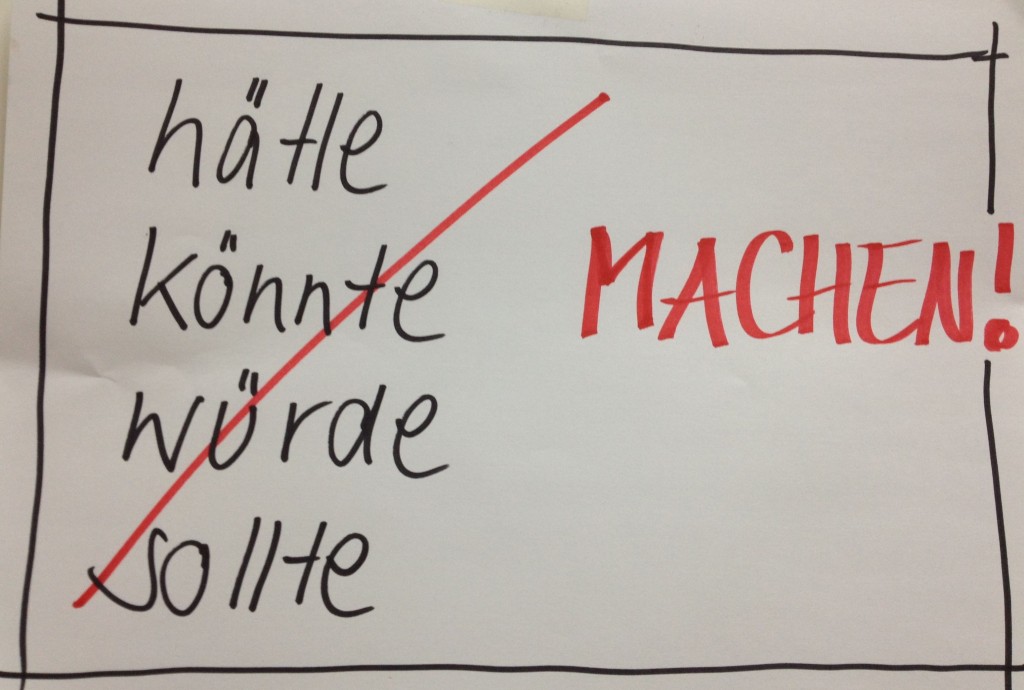 hätte
könnte
MACHEN!
würde
sollte